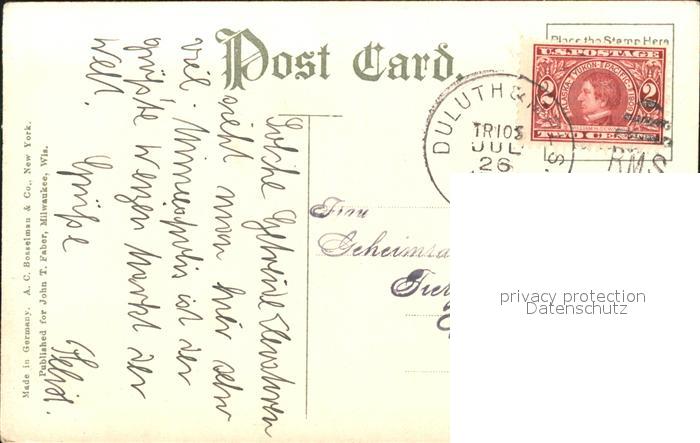 Post Card.
Place the Stamp Here
U.S. POSTAGE
ALASKA-YUKON-PACIFIC 1909
2 2
TWO CENTS
DULUTH &
TR 105
JUL
26
RMS
Solche Getreide Elevatoren
sieht man hier sehr
viel. Minneapolis ist der
größte Weizen Markt der
Welt.
Grüße
Frau
Geheimra
Made in Germany. A. C. Bosselman & Co., New York.
Published for John T. Faber, Milwaukee, Wis.
privacy protection
Datenschutz